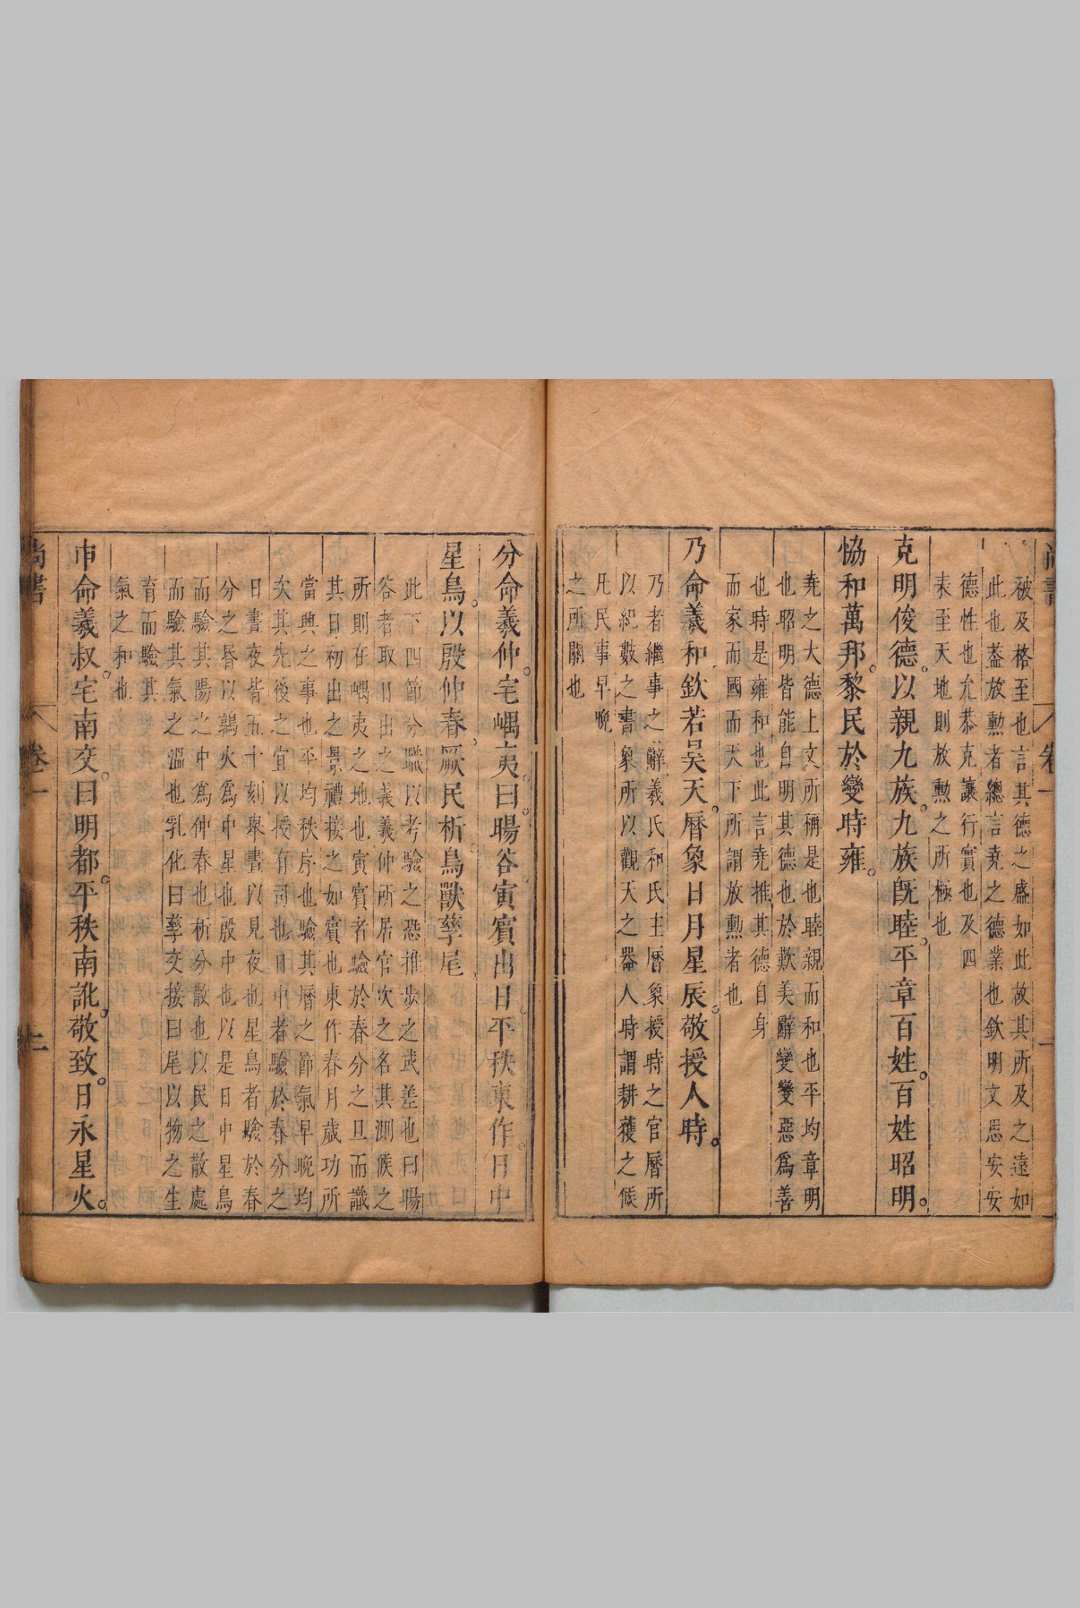 尚書
卷一
被及格至也言其德之盛如此故其所及之遠如
此也蓋放勳者總言堯之德業也欽明文思安安
德性也允恭克讓行實也及四
表至天地則放勳之所極也
克明俊德。以親九族。九族旣睦。平章百姓。百姓昭明。
協和萬邦。黎民於變時雍。
堯之大德上文所稱是也睦親而和也平均章明
也昭明皆能自明其德也於歎美辭變變惡爲善
也時是雍和也此言堯推其德自身
而家而國而天下所謂放勳者也
乃命羲和欽若昊天。曆象日月星辰。敬授人時。
乃者繼事之辭羲氏和氏主曆象授時之官曆所
以紀數之書象所以觀天之器人時謂耕穫之候
凡民事早晩
之所關也
分命羲仲。宅嵎夷。曰。暘谷寅賓出日。平秩東作。日中
星鳥。以殷仲春。厥民析鳥獸孳尾
此下四節分職以考驗之恐推步之或差也曰暘
谷者取日出之義羲仲所居官次之名其測候之
所則在嵎夷之地也寅賓者驗於春分之旦而識
其日初出之景禮接之如賓也東作春月歲功所
當興之事也平均秩序也驗其曆之節氣早晩均
次其先後之宜以授有司也日中者驗於春分之
日晝夜皆五十刻舉晝以見夜也星鳥者驗於春
分之昏以鶉火爲中星也殷中也以是日中星鳥
而驗其陽之中爲仲春也析分散也以民之散處
而驗其氣之溫也乳化曰孳交接曰尾以物之生
育而驗其
氣之和也
申命羲叔。宅南交。曰明都。平秩南訛。敬致。日永星火。
尚書
卷一
二